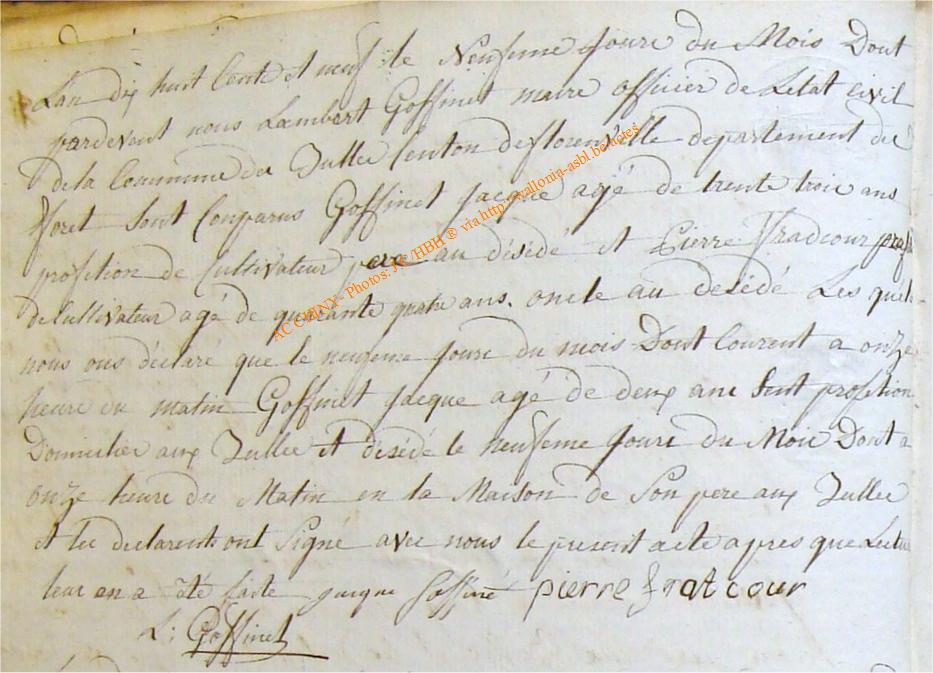 L'an dix huit Cent et neuf le Neufieme Joure du Mois Dout
pardevent nous Lambert Goffinet maire officier de Letat civil
de la Commune de Jullee Centon de florenville departement de
foret Sont Conparus Goffinet jacque agé de trente trois ans
profetion de Cultivateur pere au désédé et Pierre fradcour prof
de Cultivateur agé de quarante quatre ans. oncle au desédé Les quels
nous ons déclaré que le neufieme joure du mois Dout Courent a onze
heure du matin Goffinet jacque agé de deux ans Sent profetion
Domicilier aux Jullee et désédé le neufieme Joure du Mois Dout a
onze heure du Matin en la Maison de Son pere aux Jullee
et les declarents ont Signé avec nous le present acte apres que Lectur
leur en a été faite jacque Goffiné pierre fratcour
L: Goffinet
AC CHINY - Photos: JP/HBH ® via http://wallonia-asbl.be/actes